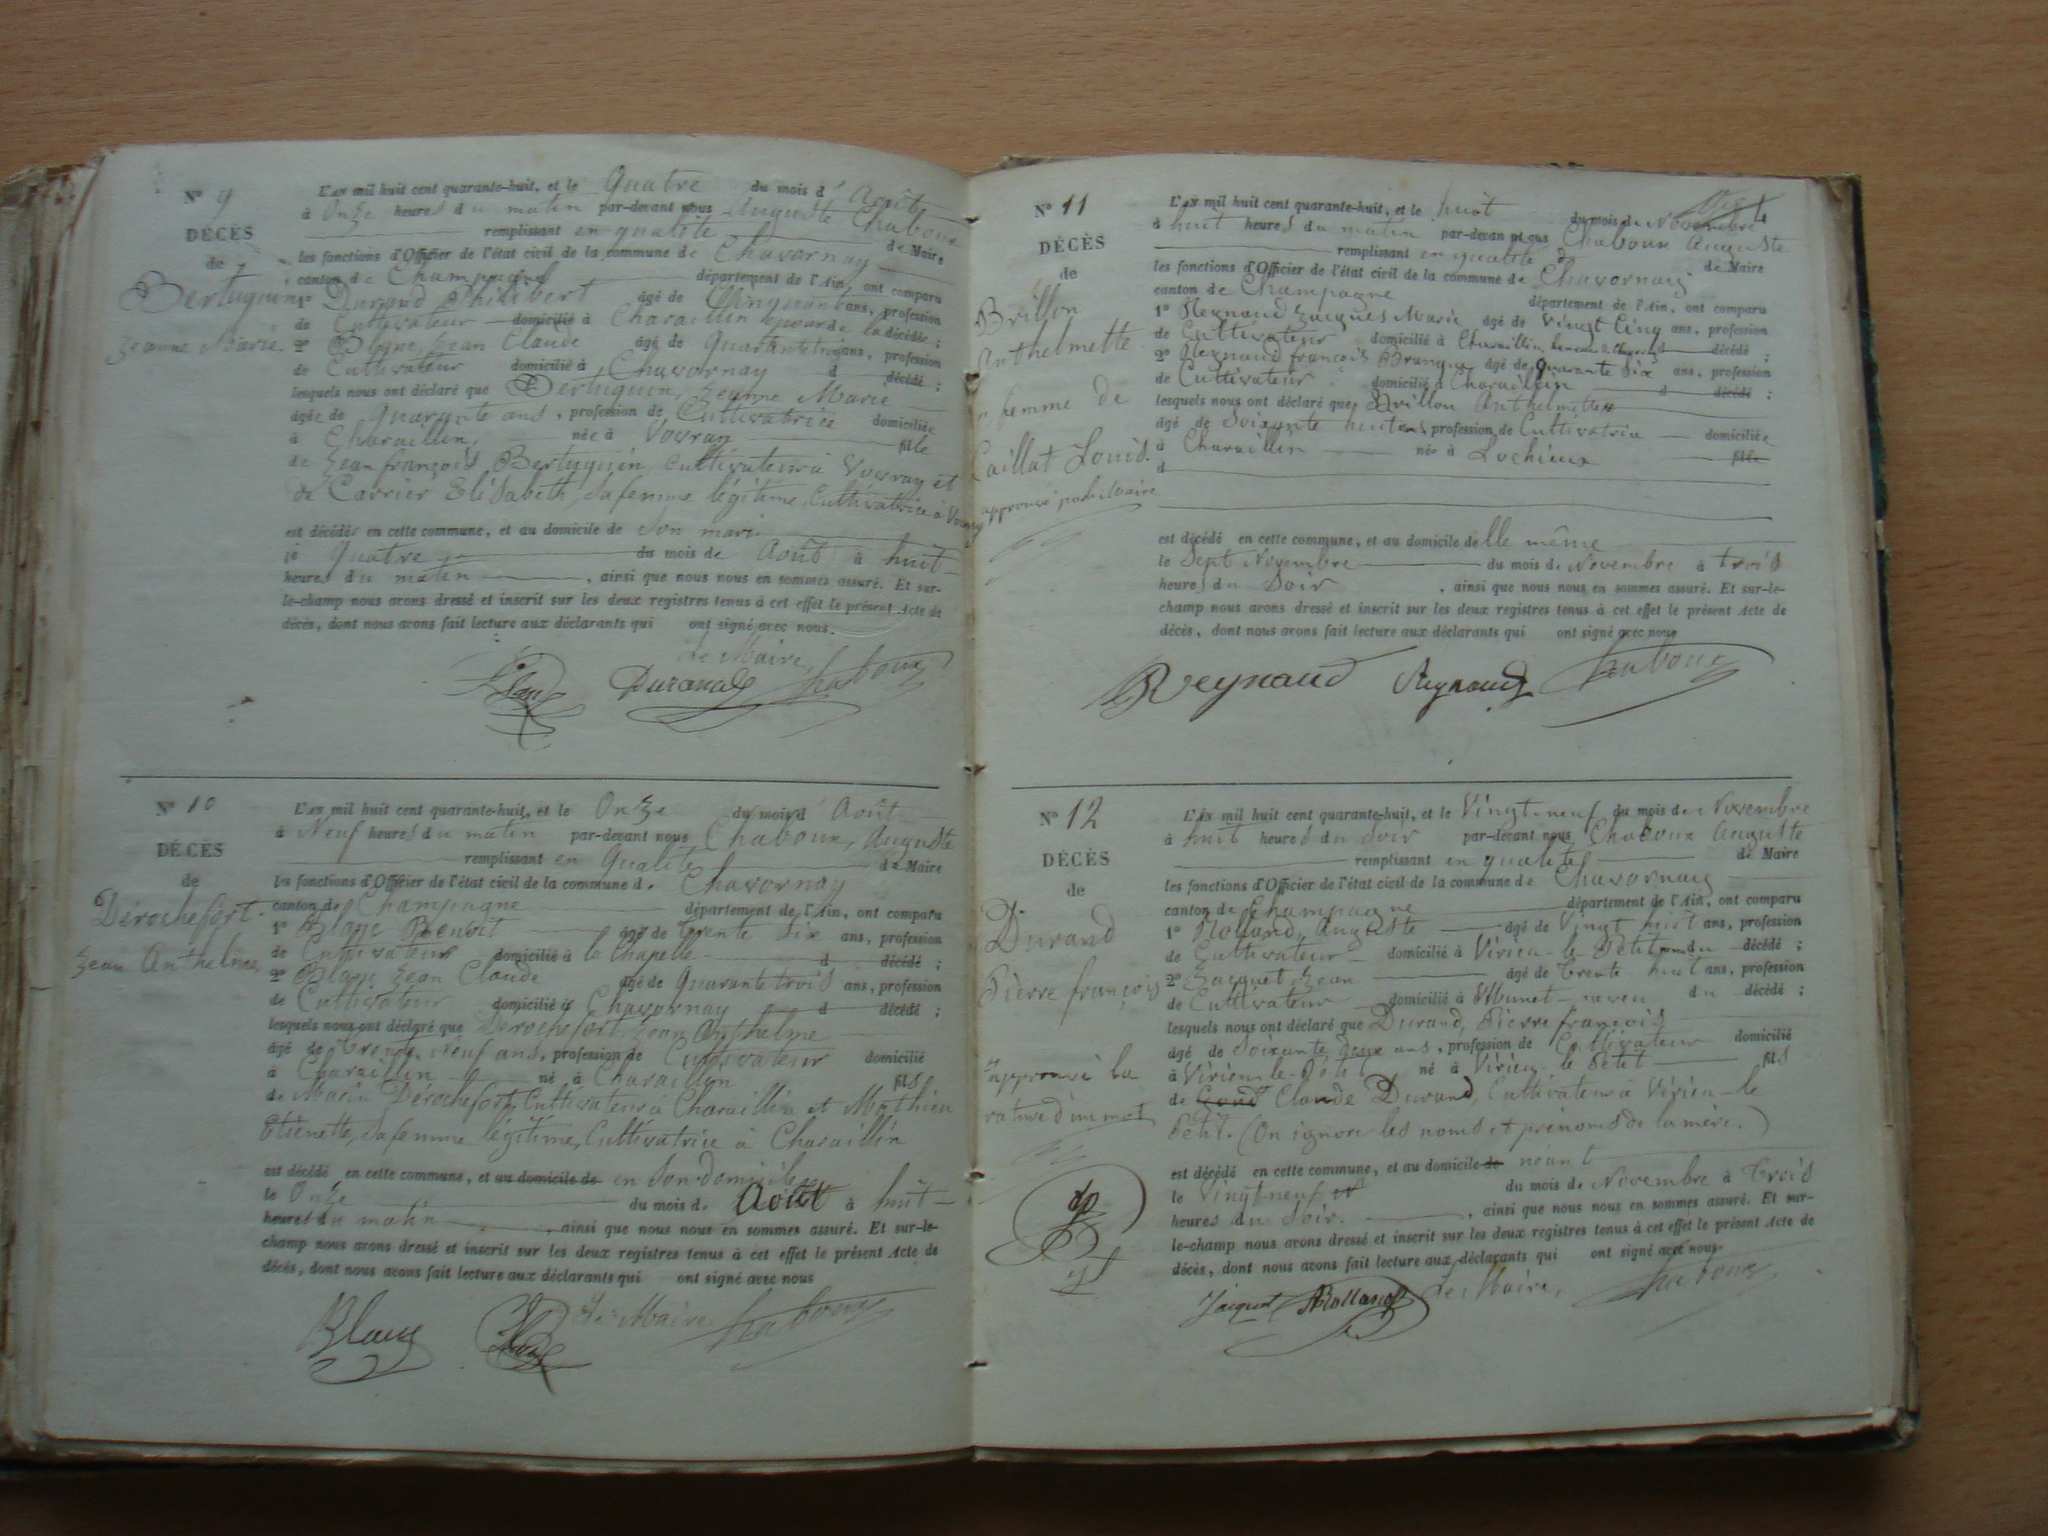 N° 9
DÉCÈS
de
Bertuguin
Jeanne Marie
L'an mil huit cent quarante-huit, et le Quatre du mois d'Août
à Onze heures du matin par-devant nous Auguste Chaboux
remplissant en qualité de Maire
les fonctions d'Officier de l'état civil de la commune de Chavornay
canton de Champagne département de l'Ain, ont comparu
1° Durand Philibert âgé de Cinquante ans, profession
de Cultivateur domicilié à Charaillin époux de la décédée ;
2° Blanc Jean Claude âgé de Quarante trois ans, profession
de Cultivateur domicilié à Chavornay d décédé ;
lesquels nous ont déclaré que Bertuguin, Jeanne Marie
âgée de Quarante ans, profession de Cultivatrice domiciliée
à Charaillin, née à Vovray fille
de Jean françois Bertuguin, Cultivateur à Vovray et
de Carrier Elisabeth, sa femme légitime, Cultivatrice à Vovray
est décédée en cette commune, et au domicile de son mari
le Quatre du mois de Août à huit
heures du matin, ainsi que nous nous en sommes assuré. Et sur-
le-champ nous avons dressé et inscrit sur les deux registres tenus à cet effet le présent Acte de
décès, dont nous avons fait lecture aux déclarants qui ont signé avec nous.
Le Maire,
Durand Chaboux
N° 10
DÉCÈS
de
Dérochefort
Jean Anthelme
L'an mil huit cent quarante-huit, et le Onze du mois d'Août
à Neuf heures du matin par-devant nous Chaboux, Auguste
remplissant en Qualité de Maire
les fonctions d'Officier de l'état civil de la commune d. Chavornay
canton de Champagne département de l'Ain, ont comparu
1° Blanc Benoit âgé de trente Six ans, profession
de Cultivateur domicilié à la Chapelle d décédé ;
2° Blanc Jean Claude âgé de Quarante trois ans, profession
de Cultivateur domicilié à Chavornay d décédé ;
lesquels nous ont déclaré que Dérochefort Jean Anthelme
âgé de trente Neuf ans, profession de Cultivateur domicilié
à Charaillin né à Charaillin fils
de Marin Dérochefort, Cultivateur à Charaillin et Mathieu
Etienette, sa femme légitime, Cultivatrice à Charaillin
est décédé en cette commune, et au domicile de en Son domicile
le Onze du mois d. Août à huit
heures du matin, ainsi que nous nous en sommes assuré. Et sur-le-
champ nous avons dressé et inscrit sur les deux registres tenus à cet effet le présent Acte de
décès, dont nous avons fait lecture aux déclarants qui ont signé avec nous
Le Maire
Blanc Chaboux
N° 11
DÉCÈS
de
Brillon
Anthelmette
femme de
Caillat Louis.
approuvé par le Maire
L'an mil huit cent quarante-huit, et le huit du mois de Novembre
à huit heures du matin par-devant nous Chaboux Auguste
remplissant en qualité de Maire
les fonctions d'Officier de l'état civil de la commune de Chavornay
canton de Champagne département de l'Ain, ont comparu
1° Reynaud Jacques Marie âgé de Vingt Cinq ans, profession
de Cultivateur domicilié à Charaillin, décédé ;
2° Reynaud françois âgé de quarante Six ans, profession
de Cultivateur domicilié à Charaillin d décédé ;
lesquels nous ont déclaré que Brillon Anthelmette
âgé de Soixante huit ans, profession de Cultivatrice domiciliée
à Charaillin née à Lochieux fille
d
est décédé en cette commune, et au domicile d'elle même
le Sept Novembre du mois de Novembre à trois
heures du Soir, ainsi que nous nous en sommes assuré. Et sur-le-
champ nous avons dressé et inscrit sur les deux registres tenus à cet effet le présent Acte de
décès, dont nous avons fait lecture aux déclarants qui ont signé avec nous
Reynaud Reynaud Chaboux
N° 12
DÉCÈS
de
Durand
Pierre françois
approuvé la
rature d'un mot
L'an mil huit cent quarante-huit, et le Vingt-neuf du mois de Novembre
à huit heures du Soir par-devant nous Chaboux Auguste
remplissant en qualité de Maire
les fonctions d'Officier de l'état civil de la commune de Chavornay
canton de Champagne département de l'Ain, ont comparu
1° Rolland, Auguste âgé de Vingt huit ans, profession
de Cultivateur domicilié à Virieu-le-Petit du décédé ;
2° Jacquet, Jean âgé de trente huit ans, profession
de Cultivateur domicilié à Munet neveu du décédé ;
lesquels nous ont déclaré que Durand, Pierre françois
âgé de Soixante deux ans, profession de Cultivateur domicilié
à Virieu-le-Petit né à Virieu-le Petit fils
de Claude Durand, Cultivateur à Virieu-le
Petit. (On ignore les noms et prénoms de la mère.)
est décédé en cette commune, et au domicile de neant
le Vingt-neuf du mois de Novembre à trois
heures du Soir., ainsi que nous nous en sommes assuré. Et sur-
le-champ nous avons dressé et inscrit sur les deux registres tenus à cet effet le présent Acte de
décès, dont nous avons fait lecture aux déclarants qui ont signé avec nous.
Jacquet Rolland Le Maire, Chaboux